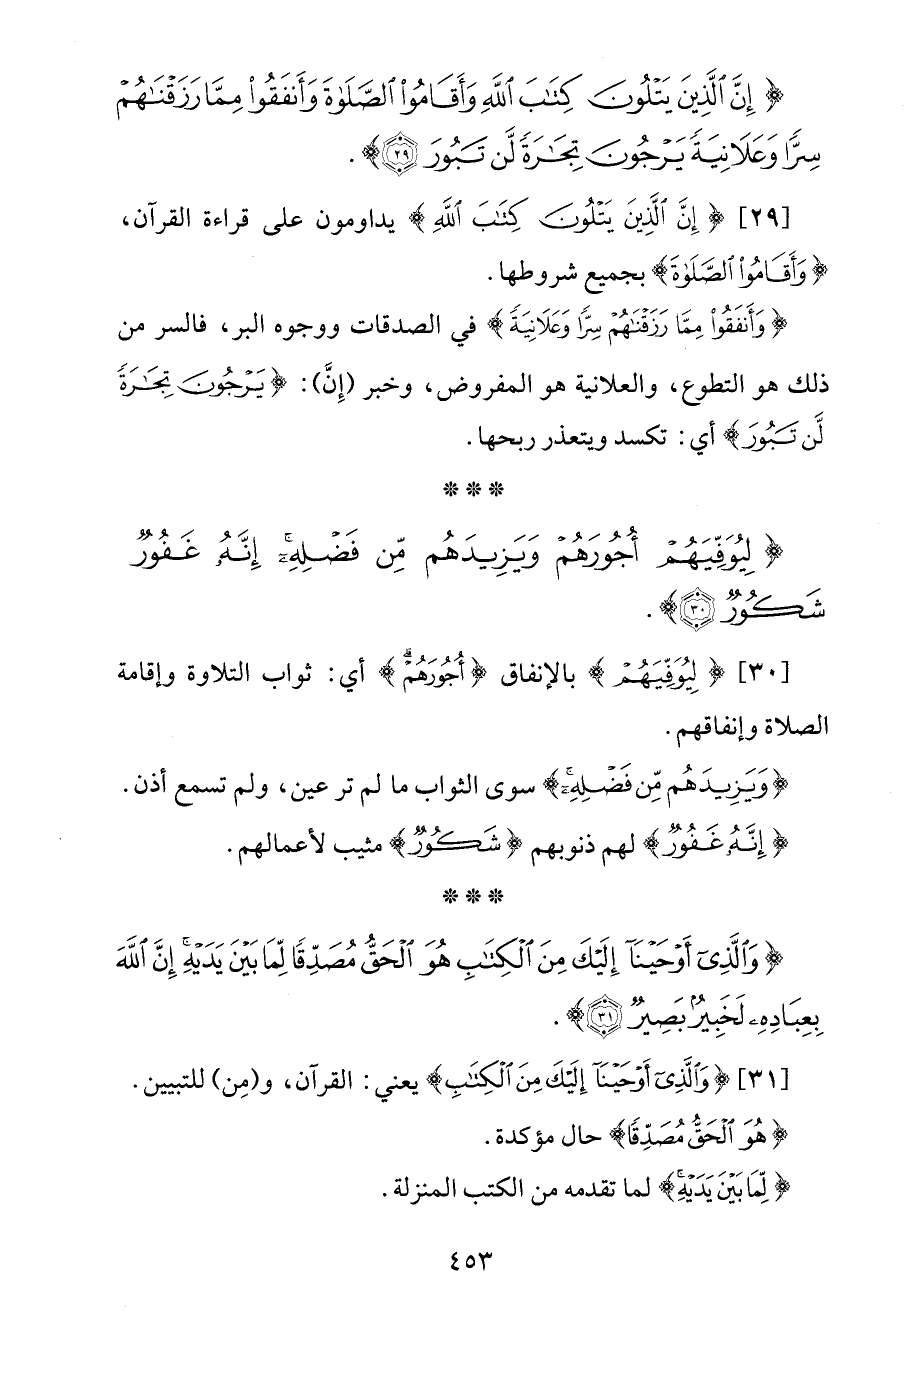 ﴿ إِنَّ ٱلَّذِينَ يَتْلُونَ كِتَٰبَ ٱللَّهِ وَأَقَامُوا۟ ٱلصَّلَوٰةَ وَأَنفَقُوا۟ مِمَّا رَزَقْنَٰهُمْ
سِرًّا وَعَلَانِيَةً يَرْجُونَ تِجَٰرَةً لَّن تَبُورَ ٢٩ ﴾ .
[٢٩] ﴿ إِنَّ ٱلَّذِينَ يَتْلُونَ كِتَٰبَ ٱللَّهِ ﴾ يداومون على قراءة القرآن،
﴿ وَأَقَامُوا۟ ٱلصَّلَوٰةَ ﴾ بجميع شروطها .
﴿ وَأَنفَقُوا۟ مِمَّا رَزَقْنَٰهُمْ سِرًّا وَعَلَانِيَةً ﴾ في الصدقات ووجوه البر، فالسر من
ذلك هو التطوع، والعلانية هو المفروض، وخبر (إنَّ): ﴿ يَرْجُونَ تِجَٰرَةً
لَّن تَبُورَ ﴾ أي: تكسد ويتعذر ربحها .
* * *
﴿ لِيُوَفِّيَهُمْ أُجُورَهُمْ وَيَزِيدَهُم مِّن فَضْلِهِۦٓ ۚ إِنَّهُۥ غَفُورٌ
شَكُورٌ ٣٠ ﴾ .
[٣٠] ﴿ لِيُوَفِّيَهُمْ ﴾ بالإنفاق ﴿ أُجُورَهُمْ ﴾ أي: ثواب التلاوة وإقامة
الصلاة وإنفاقهم .
﴿ وَيَزِيدَهُم مِّن فَضْلِهِۦٓ ۚ ﴾ سوى الثواب ما لم تر عين، ولم تسمع أذن .
﴿ إِنَّهُۥ غَفُورٌ ﴾ لهم ذنوبهم ﴿ شَكُورٌ ﴾ مثيب لأعمالهم .
* * *
﴿ وَٱلَّذِىٓ أَوْحَيْنَآ إِلَيْكَ مِنَ ٱلْكِتَٰبِ هُوَ ٱلْحَقُّ مُصَدِّقًا لِّمَا بَيْنَ يَدَيْهِ ۗ إِنَّ ٱللَّهَ
بِعِبَادِهِۦ لَخَبِيرٌۢ بَصِيرٌ ٣١ ﴾ .
[٣١] ﴿ وَٱلَّذِىٓ أَوْحَيْنَآ إِلَيْكَ مِنَ ٱلْكِتَٰبِ ﴾ يعني: القرآن، و(مِن) للتبيين .
﴿ هُوَ ٱلْحَقُّ مُصَدِّقًا ﴾ حال مؤكدة .
﴿ لِّمَا بَيْنَ يَدَيْهِ ۗ ﴾ لما تقدمه من الكتب المنزلة .
٤٥٣